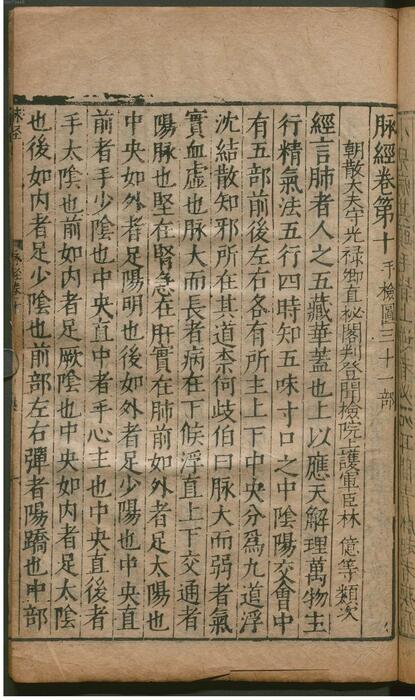 脉經卷第十 手檢圖三十一部
朝散大夫守光祿卿直祕閣判登聞檢院上護軍臣林 億等類次
經言肺者人之五藏華蓋也上以應天解理萬物主
行精氣法五行四時知五味寸口之中陰陽交會中
有五部前後左右各有所主上下中央分爲九道浮
沈結散知邪所在其道柰何歧伯曰脉大而弱者氣
實血虛也脉大而長者病在下候浮直上下交通者
陽脉也堅在腎急在肝實在肺前如外者足太陽也
中央如外者足陽明也後如外者足少陽也中央直
前者手少陰也中央直中者手心主也中央直後者
手太陰也前如內者足厥陰也中央如內者足太陰
也後如內者足少陰也前部左右彈者陽蹻也中部
脉經